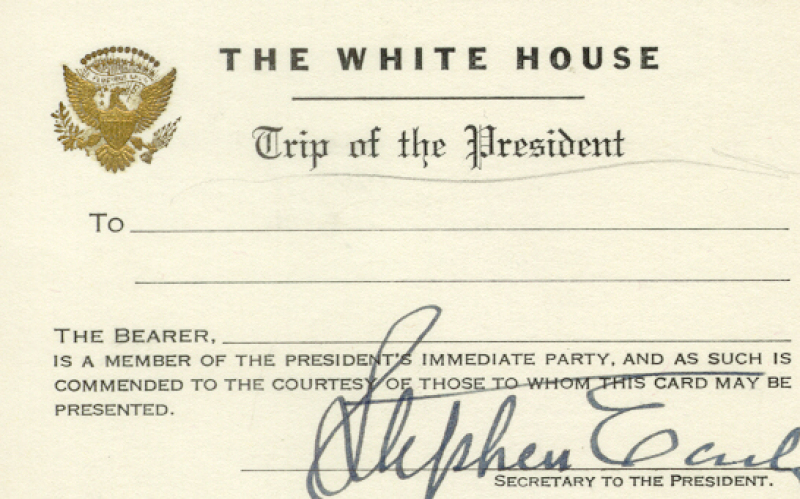 THE WHITE HOUSE
Trip of the President
To
THE BEARER,
IS A MEMBER OF THE PRESIDENT'S IMMEDIATE PARTY, AND AS SUCH IS
COMMENDED TO THE COURTESY OF THOSE TO WHOM THIS CARD MAY BE
PRESENTED.
Stephen Early
SECRETARY TO THE PRESIDENT.